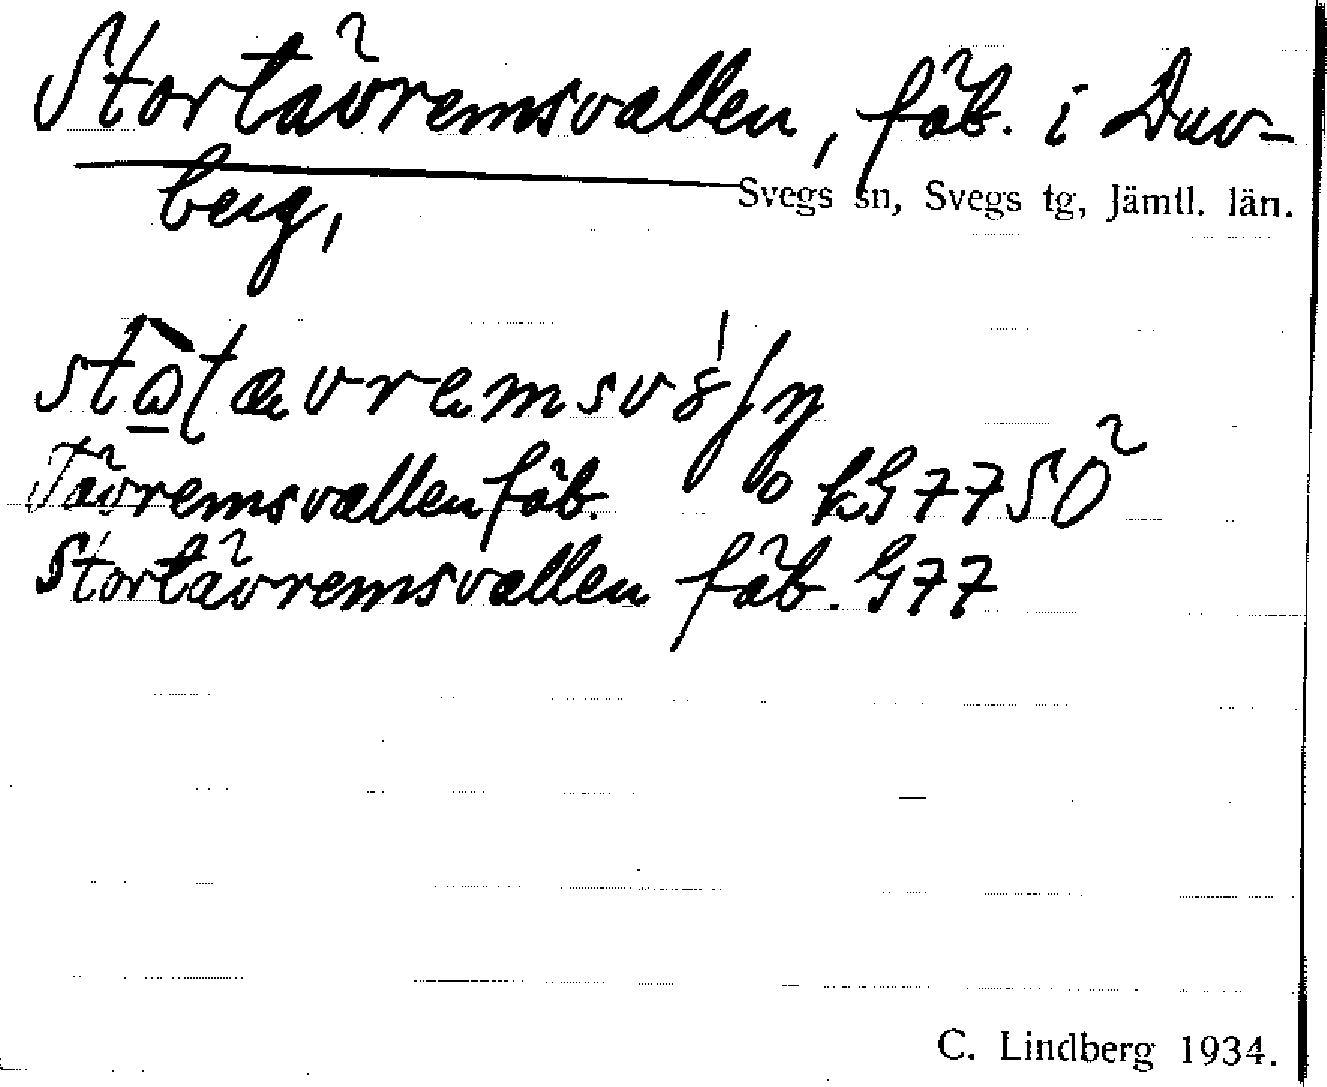 Stortävremsvallen, fäb. i Duv-
berg,
Svegs sn, Svegs tg, Jämtl. län.
Tävremsvallen fäb. kG77SÖ
Stortävremsvallen fäb. G77
C. Lindberg 1934.